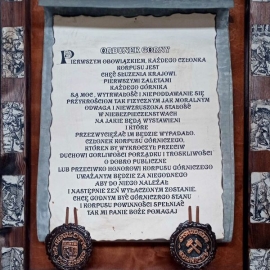 ORDUNEK GÓRNY
PIERWSZYM OBOWIĄZKIEM, KAŻDEGO CZŁONKA
KORPUSU JEST
CHĘĆ SŁUŻENIA KRAJOWI.
PIERWSZYMI ZALETAMI
KAŻDEGO GÓRNIKA
SĄ MOC, WYTRWAŁOŚĆ I NIEPODDAWANIE SIĘ
PRZYKROŚCIOM TAK FIZYCZNYM JAK MORALNYM
ODWAGA I NIEWZRUSZONA STAŁOŚĆ
W NIEBEZPIECZEŃSTWACH
NA JAKIE BĘDĄ WYSTAWIENI
I KTÓRE
PRZEZWYCIĘŻAĆ IM BĘDZIE WYPADAŁO.
CZŁONEK KORPUSU GÓRNICZEGO,
KTÓREN BY WYKROCZYŁ PRZECIW
DUCHOWI GORLIWOŚCI PORZĄDKU I TROSKLIWOŚCI
O DOBRO PUBLICZNE
LUB PRZECIWKO HONOROWI KORPUSU GÓRNICZEGO
UWAŻANYM BĘDZIE ZA NIEGODNEGO
ABY DO NIEGO NALEŻAŁ
I NASTĘPNIE ZEŃ WYŁĄCZONYM ZOSTANIE.
CHCĘ GODNYM BYĆ GÓRNICZEGO STANU
I KORPUSU POWINNOŚCI SPEŁNIAĆ
TAK MI PANIE BOŻE POMAGAJ